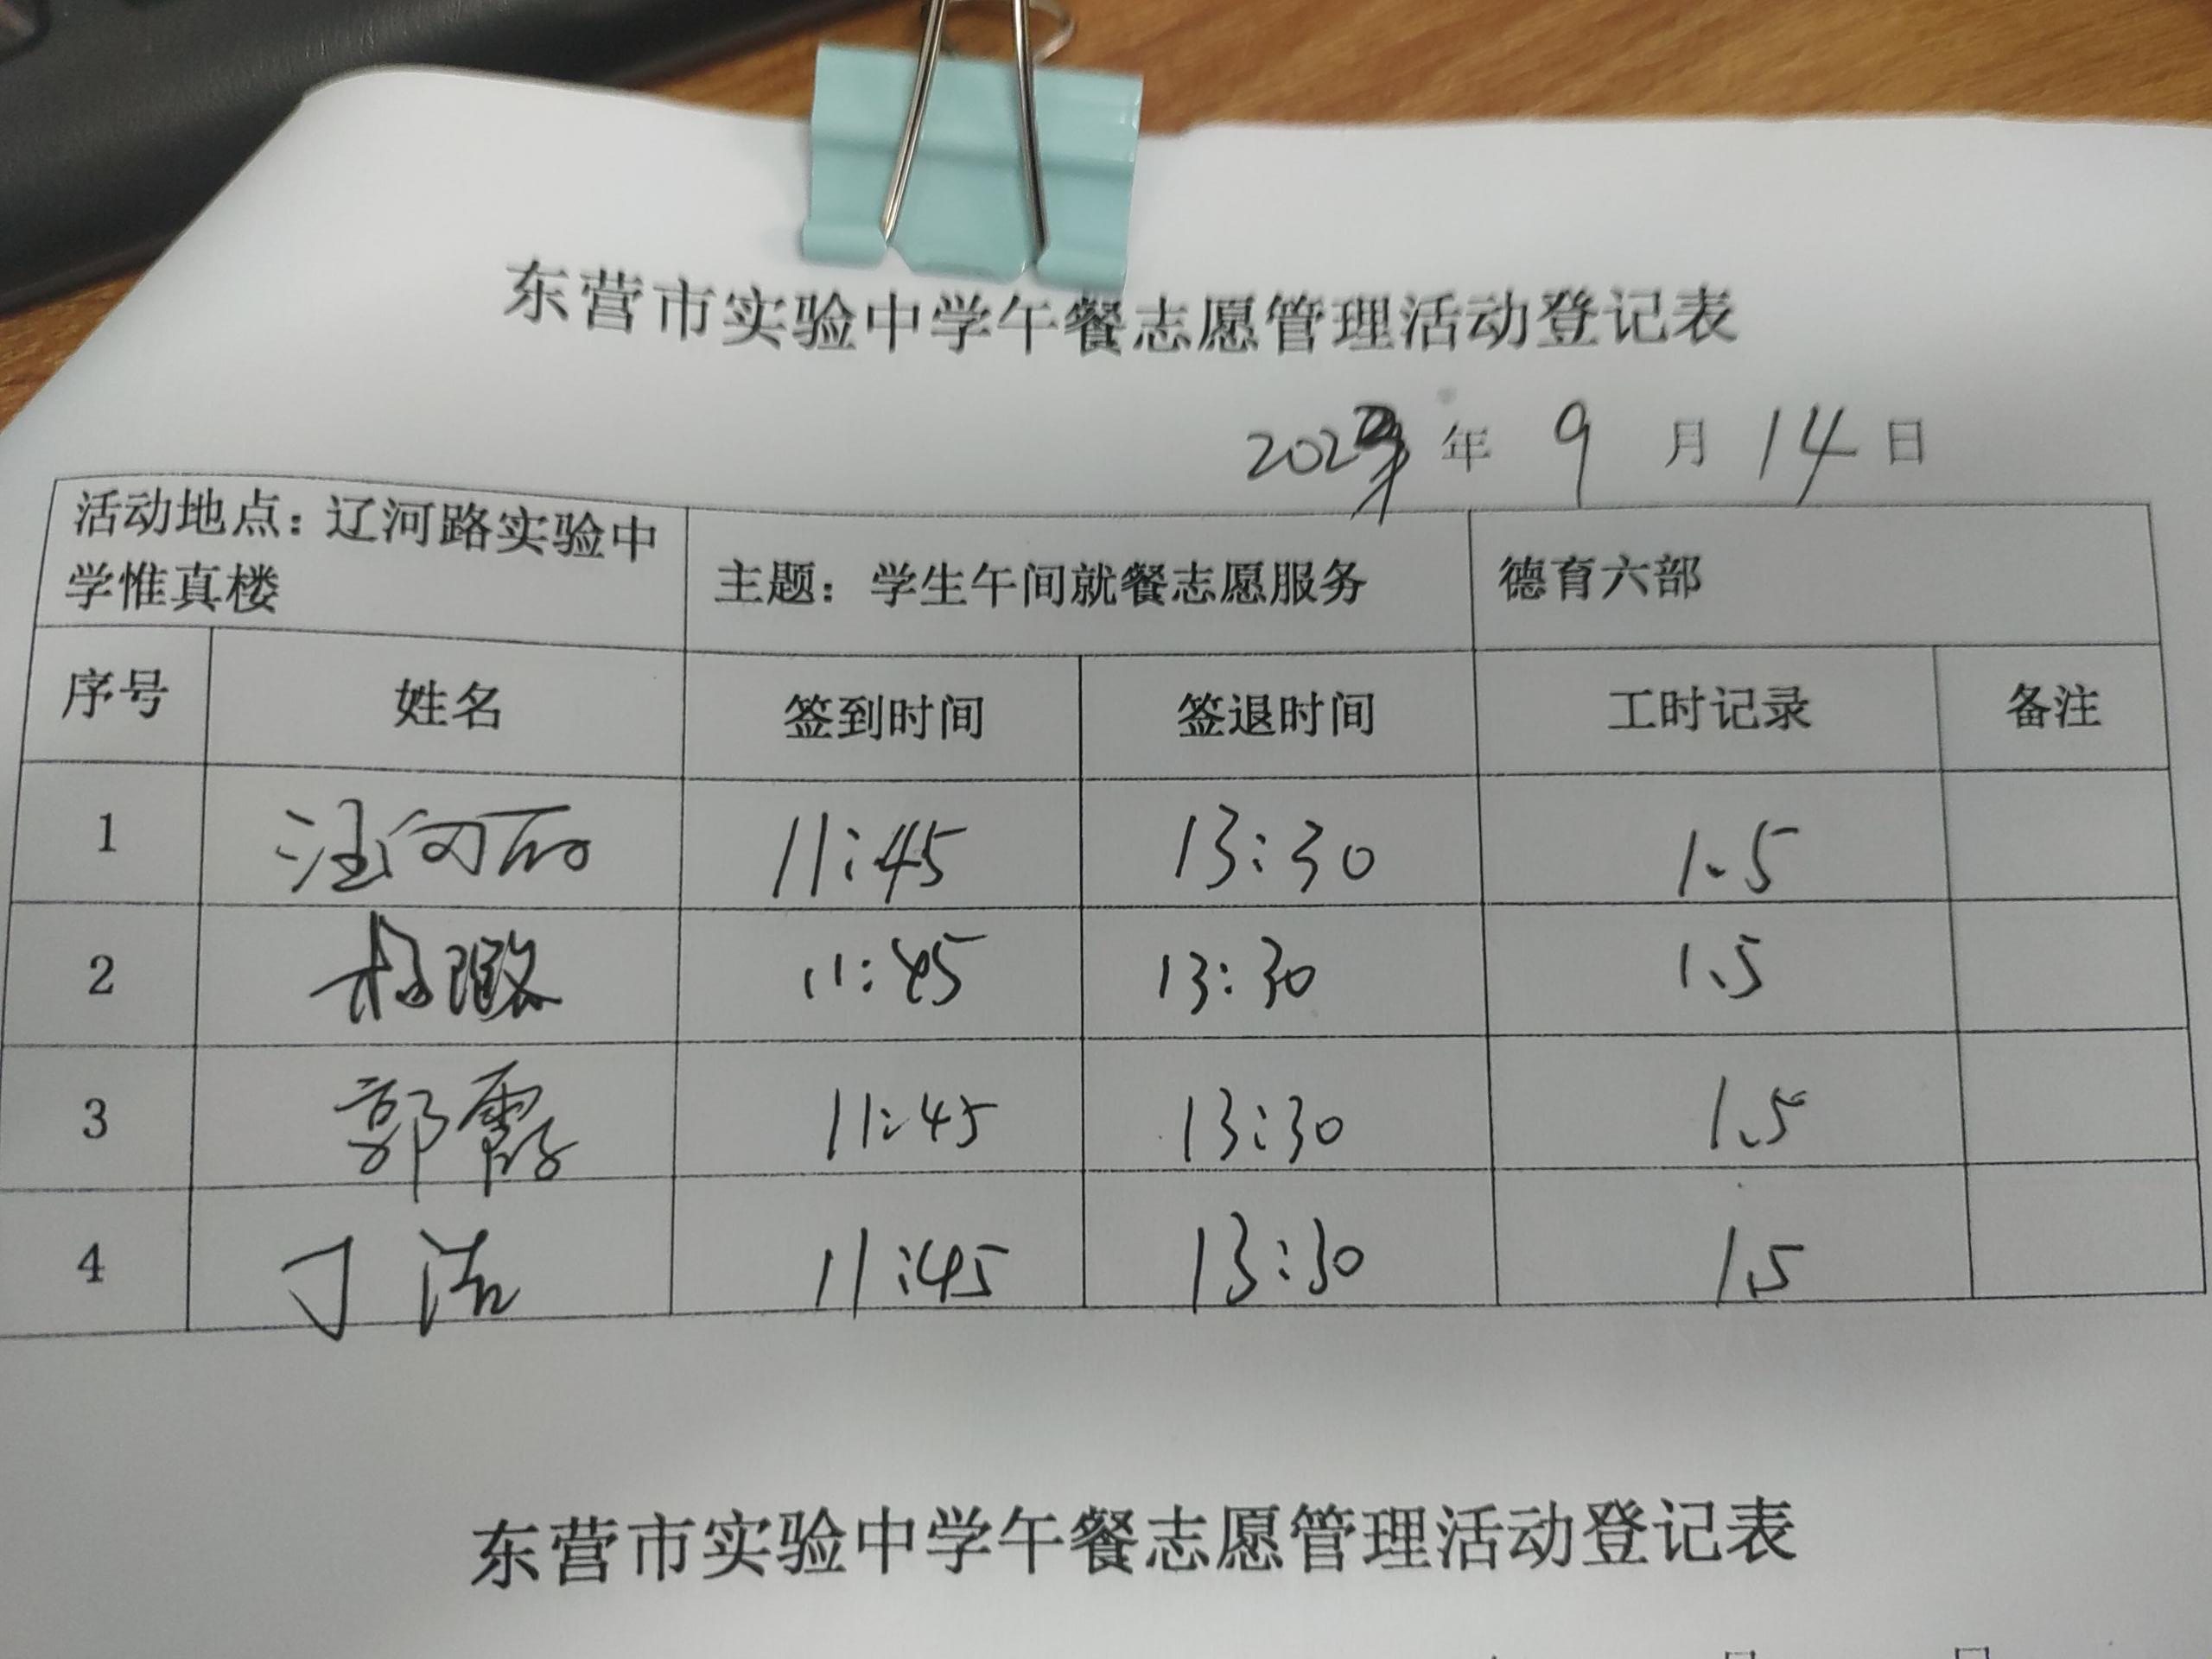 东营市实验中学午餐志愿管理活动登记表
年 9 月 14 日
活动地点：辽河路实验中
学惟真楼
主题：学生午间就餐志愿服务
德育六部
序号 姓名 签到时间 签退时间 工时记录 备注
1 11:45 13:30 1.5
2 杨璐 11:45 13:30 1.5
3 郭霞 11:45 13:30 1.5
4 丁洁 11:45 13:30 1.5
东营市实验中学午餐志愿管理活动登记表